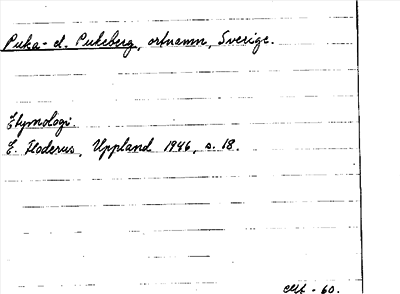 Puka- el. Pukeberg, ortnamn, Sverige.
Etymologi.
E. Floderus, Uppland 1946, s. 18.
-60.